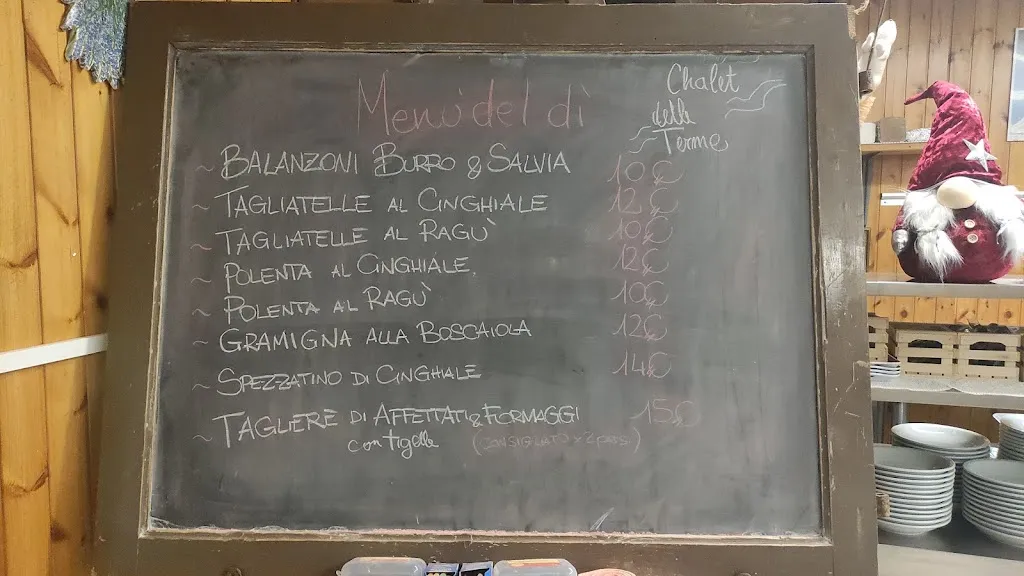 Menù del dì
Chalet
delle
Terme
~ BALANZONI BURRO & SALVIA 10€
~ TAGLIATELLE AL CINGHIALE 12€
~ TAGLIATELLE AL RAGÙ 10€
~ POLENTA AL CINGHIALE 12€
~ POLENTA AL RAGÙ 10€
~ GRAMIGNA ALLA BOSCAIOLA 12€
~ SPEZZATINO DI CINGHIALE 14€
~ TAGLIERE DI AFFETTATI & FORMAGGI 15€
con tigelle (CONSIGLIATO x 2 pers)